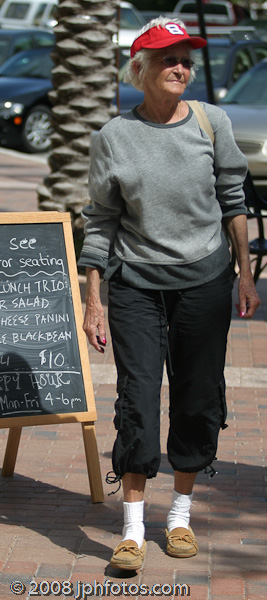 See
for seating
LUNCH TRIO
SALAD
CHEESE PANINI
BLACKBEAN
$10
HOUR
Mon-Fri 4-6pm
© 2008 jphfotos.com